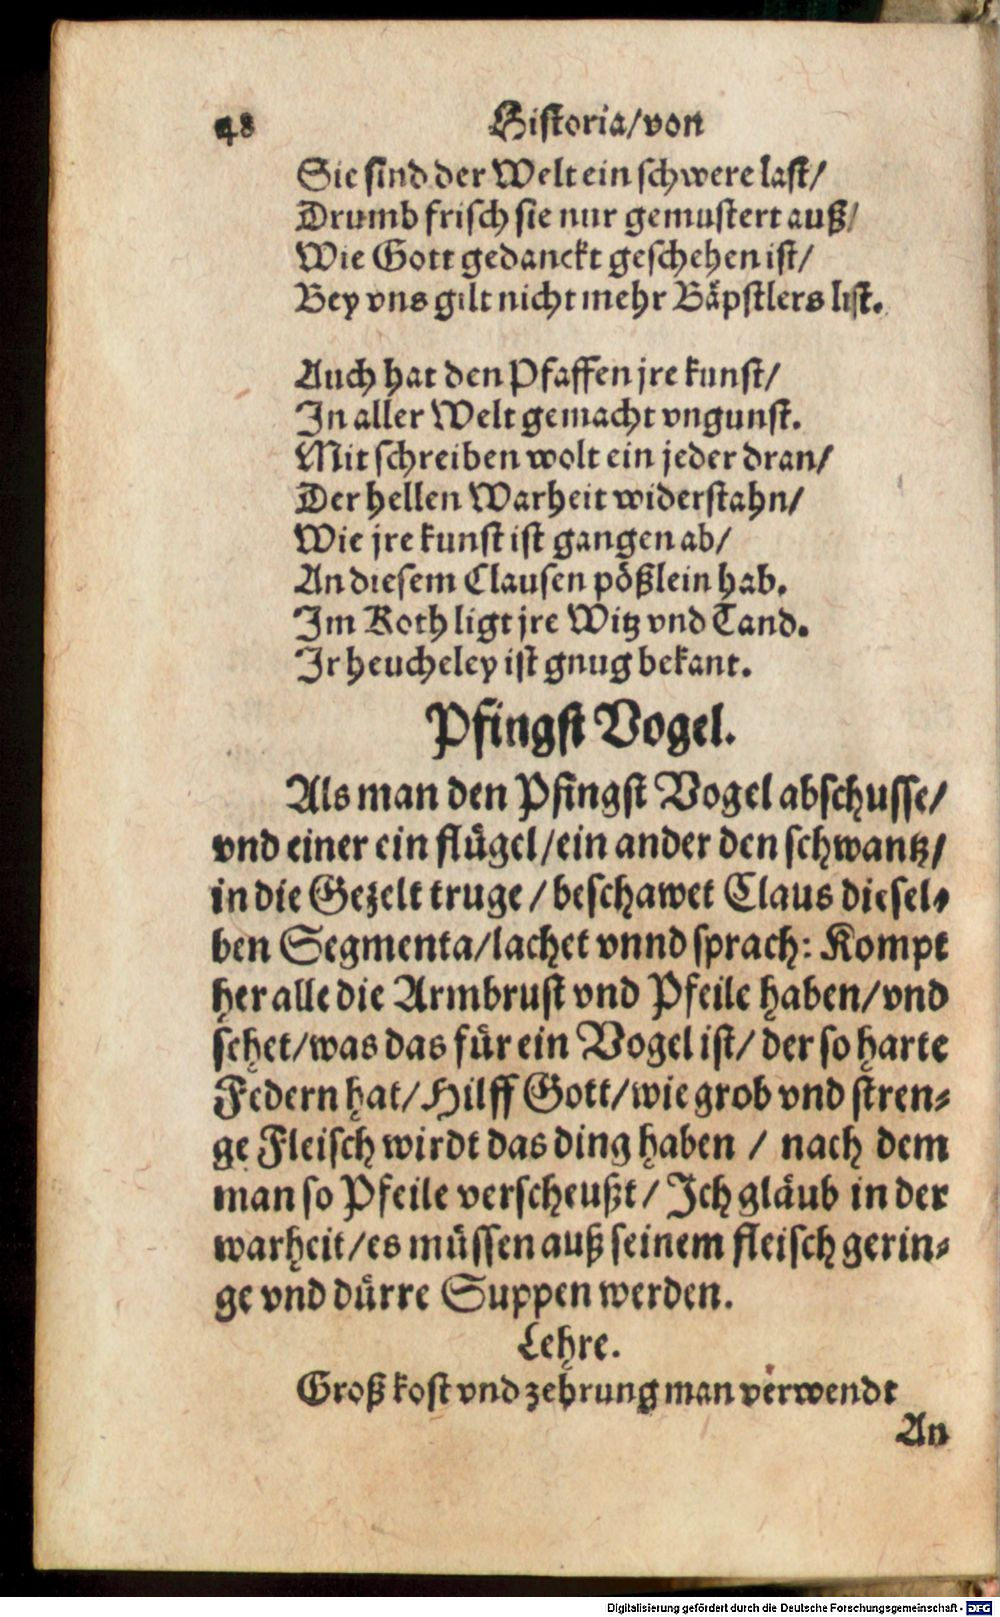 48 Historia/von
Sie sind der Welt ein schwere last/
Drumb frisch sie nur gemustert auß/
Wie Gott gedanckt geschehen ist/
Bey vns gilt nicht mehr Bäpstlers list.
Auch hat den Pfaffen jre kunst/
In aller Welt gemacht vngunst.
Mit schreiben wolt ein jeder dran/
Der hellen Warheit widerstahn/
Wie jre kunst ist gangen ab/
An diesem Clausen pößlein hab.
Im Koth ligt jre Witz vnd Tand.
Ir heucheley ist gnug bekant.
Pfingst Vogel.
Als man den Pfingst Vogel abschusse/
vnd einer ein flügel/ein ander den schwantz/
in die Gezelt truge/beschawet Claus diesel⸗
ben Segmenta/lachet vnnd sprach: Kompt
her alle die Armbrust vnd Pfeile haben/vnd
sehet/was das für ein Vogel ist/der so harte
Federn hat/Hilff Gott/wie grob vnd stren⸗
ge Fleisch wirdt das ding haben / nach dem
man so Pfeile verscheußt/Ich gläub in der
warheit/es müssen auß seinem fleisch gerin⸗
ge vnd dürre Suppen werden.
Lehre.
Groß kost vnd zehrung man verwendt
An
Digitalisierung gefördert durch die Deutsche Forschungsgemeinschaft - DFG